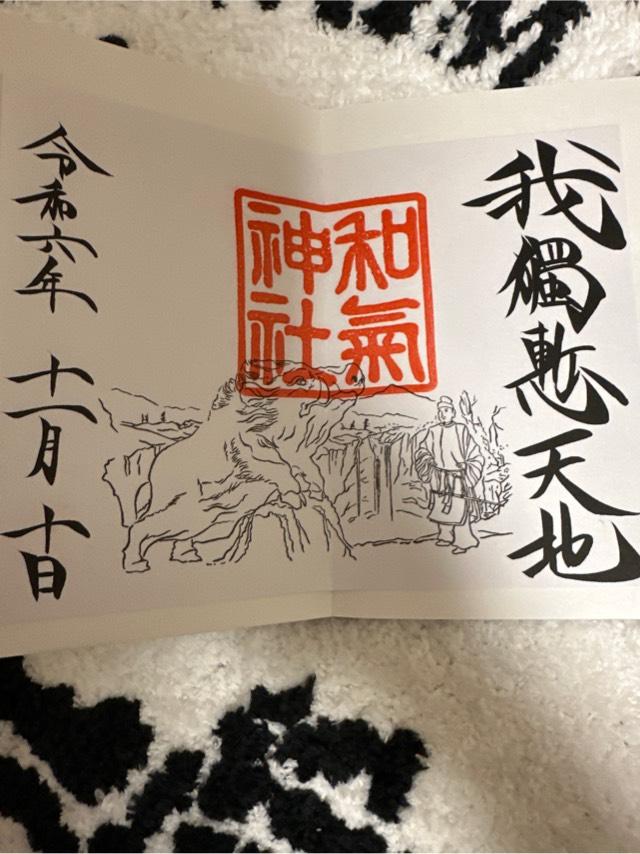 我獨慙天地
和氣
神社
令和六年 十一月 十日